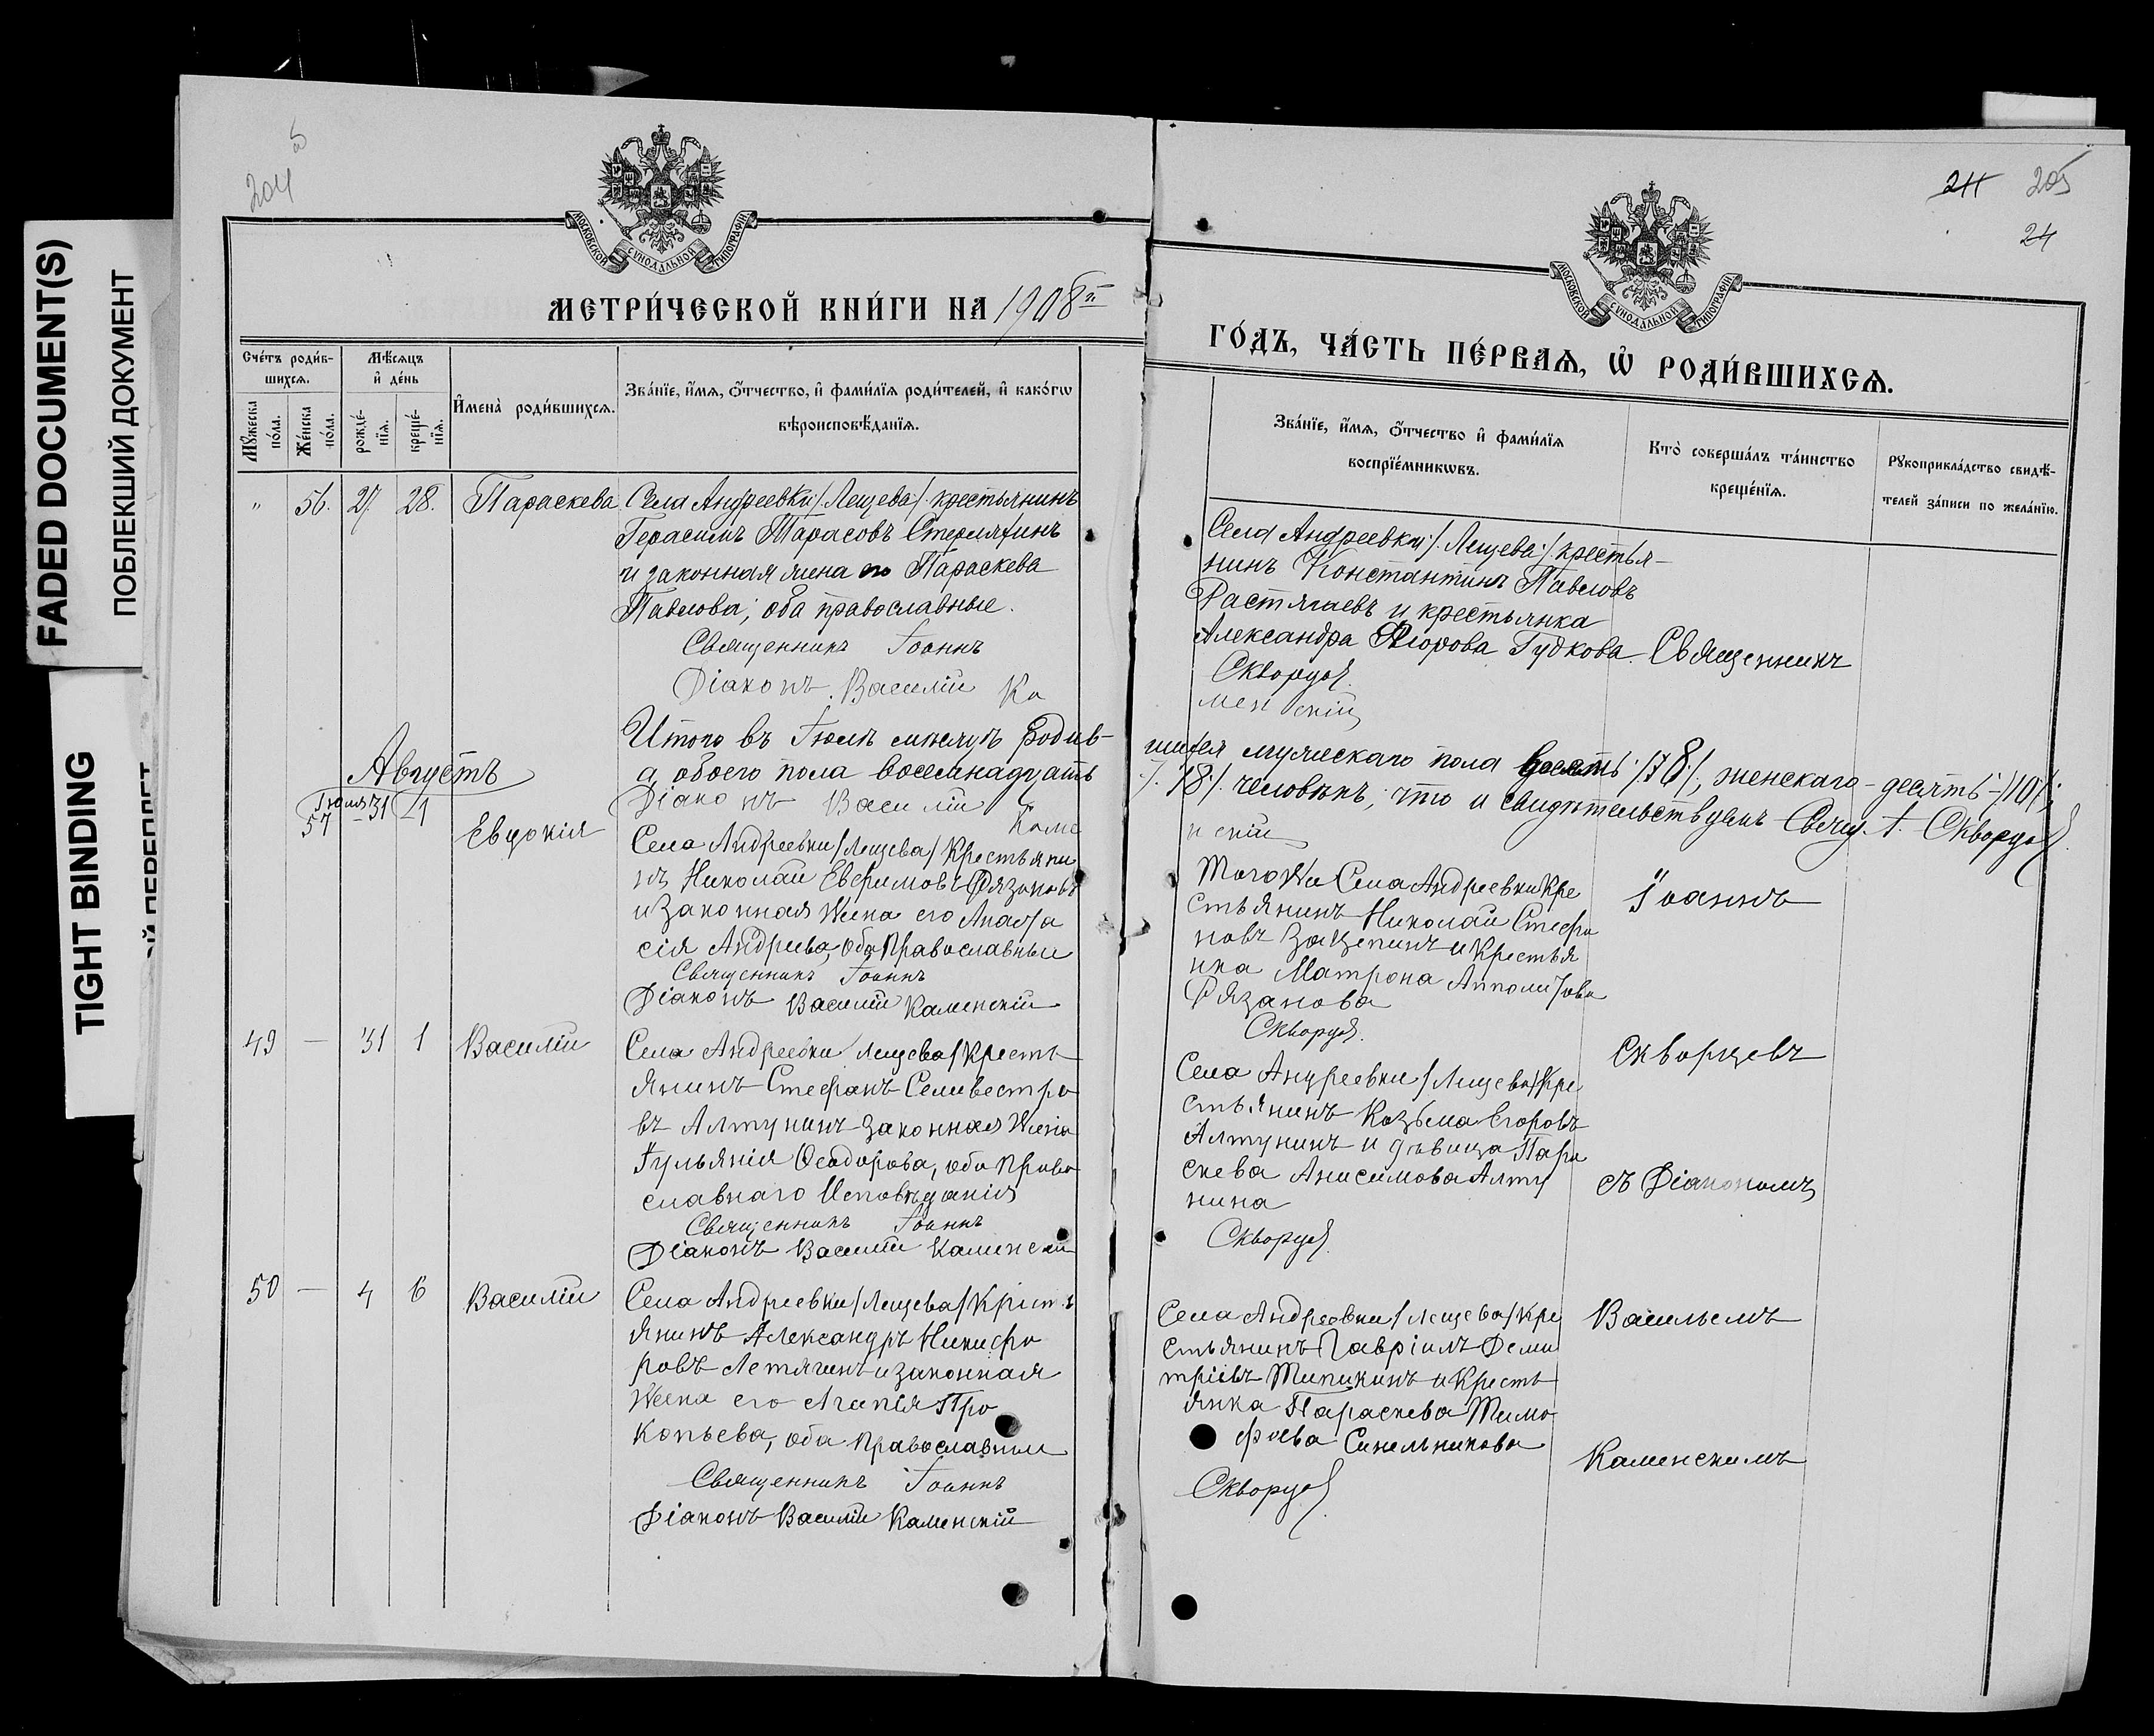 FADED DOCUMENT(S)
ПОБЛЕКШИЙ ДОКУМЕНТ
TIGHT BINDING
204
МОСКОВСКОЙ СѴНОДАЛЬНОЙ ТИПОГРАФІИ
МЕТРИ́ЧЕСКОЙ КНИ́ГИ НА 1908й
Сче́тъ роди́в-
шихсѧ.
Мѣ́сѧцъ
и҆ де́нь
Мꙋ́жеска
по́ла.
Же́нска
по́ла.
рожде́-
нїѧ.
креще́-
нїѧ.
И҆мена̀ роди́вшихсѧ.
Зва́нїе, и҆́мѧ, ѻ҆́тчество, и҆ фами́лїѧ роди́телей, и҆ како́гѡ
вѣроисповѣ́данїѧ.
" 56. 27. 28. Параскева
Села Андреевки /.Лещева/. крестьянинъ
Герасимъ Тарасовъ Стерлягинъ
и законная жена его Параскева
Павлова; оба православные.
Священникъ Іоаннъ
Діаконъ Василій Ка
Итого въ Іюлѣ мѣсяцѣ родив-
а обоего пола восемнадцать
Августъ
Діаконъ Василій Каме
57 Іюля 31 1 Евдокія
Села Андреевки /Лещева/ Крестьяни
нъ Николай Ефимовъ Рязановъ
и Законная Жена его Анаста
сія Андреева, оба Православные
Священникъ Іоаннъ
Діаконъ Василій Каменскій
49 — 31 1 Василій
Села Андреевки /Лещева/ Кресть
янинъ Стефанъ Селивестро
въ Алтунинъ Законная Жена
Іульянія Ѳеодорова, оба Право
славнаго Исповѣданія
Священникъ Іоаннъ
Діаконъ Василій Каменскій
50 — 4 6 Василій
Села Андреевки /Лещева/ Кресть
янинъ Александръ Никифо
ровъ Летягинъ и законная
Жена его Агапія Про
копьева, оба Православные
Священникъ Іоаннъ
Діаконъ Василій Каменскій
211 205
24
МОСКОВСКОЙ СѴНОДАЛЬНОЙ ТИПОГРАФІИ
ГО́ДЪ, ЧА́СТЬ ПЕ́РВАѦ, Ѡ҆ РОДИ́ВШИХСѦ.
Зва́нїе, и҆́мѧ, ѻ҆́тчество и҆ фами́лїѧ
воспрїе́мникѡвъ.
Кто̀ соверша́лъ та́инство
креще́нїѧ.
Рꙋкоприкла́дство свидѣ́-
телей за́писи по жела́нїю.
Села Андреевки /.Лещева/. крестья-
нинъ Константинъ Павловъ
Растягаевъ и крестьянка
Александра Гудкова. Священникъ
Скворцов
менскій
шихся мужескаго пола /.8/., женскаго - десять - /10/.;
/.18/. человѣкъ; что и свидѣтельствуемъ Свящ. І. Скворцов
нскій
Того Же Села Андреевки Кре
стьянинъ Николай Стефа
новъ Зацепинъ и Крестья
нка Матрона Апполитова
Рязанова
Іоаннъ
Скворцов
Скворцевъ
Села Андреевки /Лещева/ Кре
стьянинъ Козьма Егоровъ
Алтунинъ и дѣвица Пара
скева Анисимова Алту
нина
съ Діакономъ
Скворцов
Села Андреевки /Лещева/ Кре
стьянинъ Гавріилъ Деми
тріевъ Типикинъ и Кресть
янка Параскева Тимо
фѣева Синельникова
Васильемъ
Каменскимъ
Скворцов